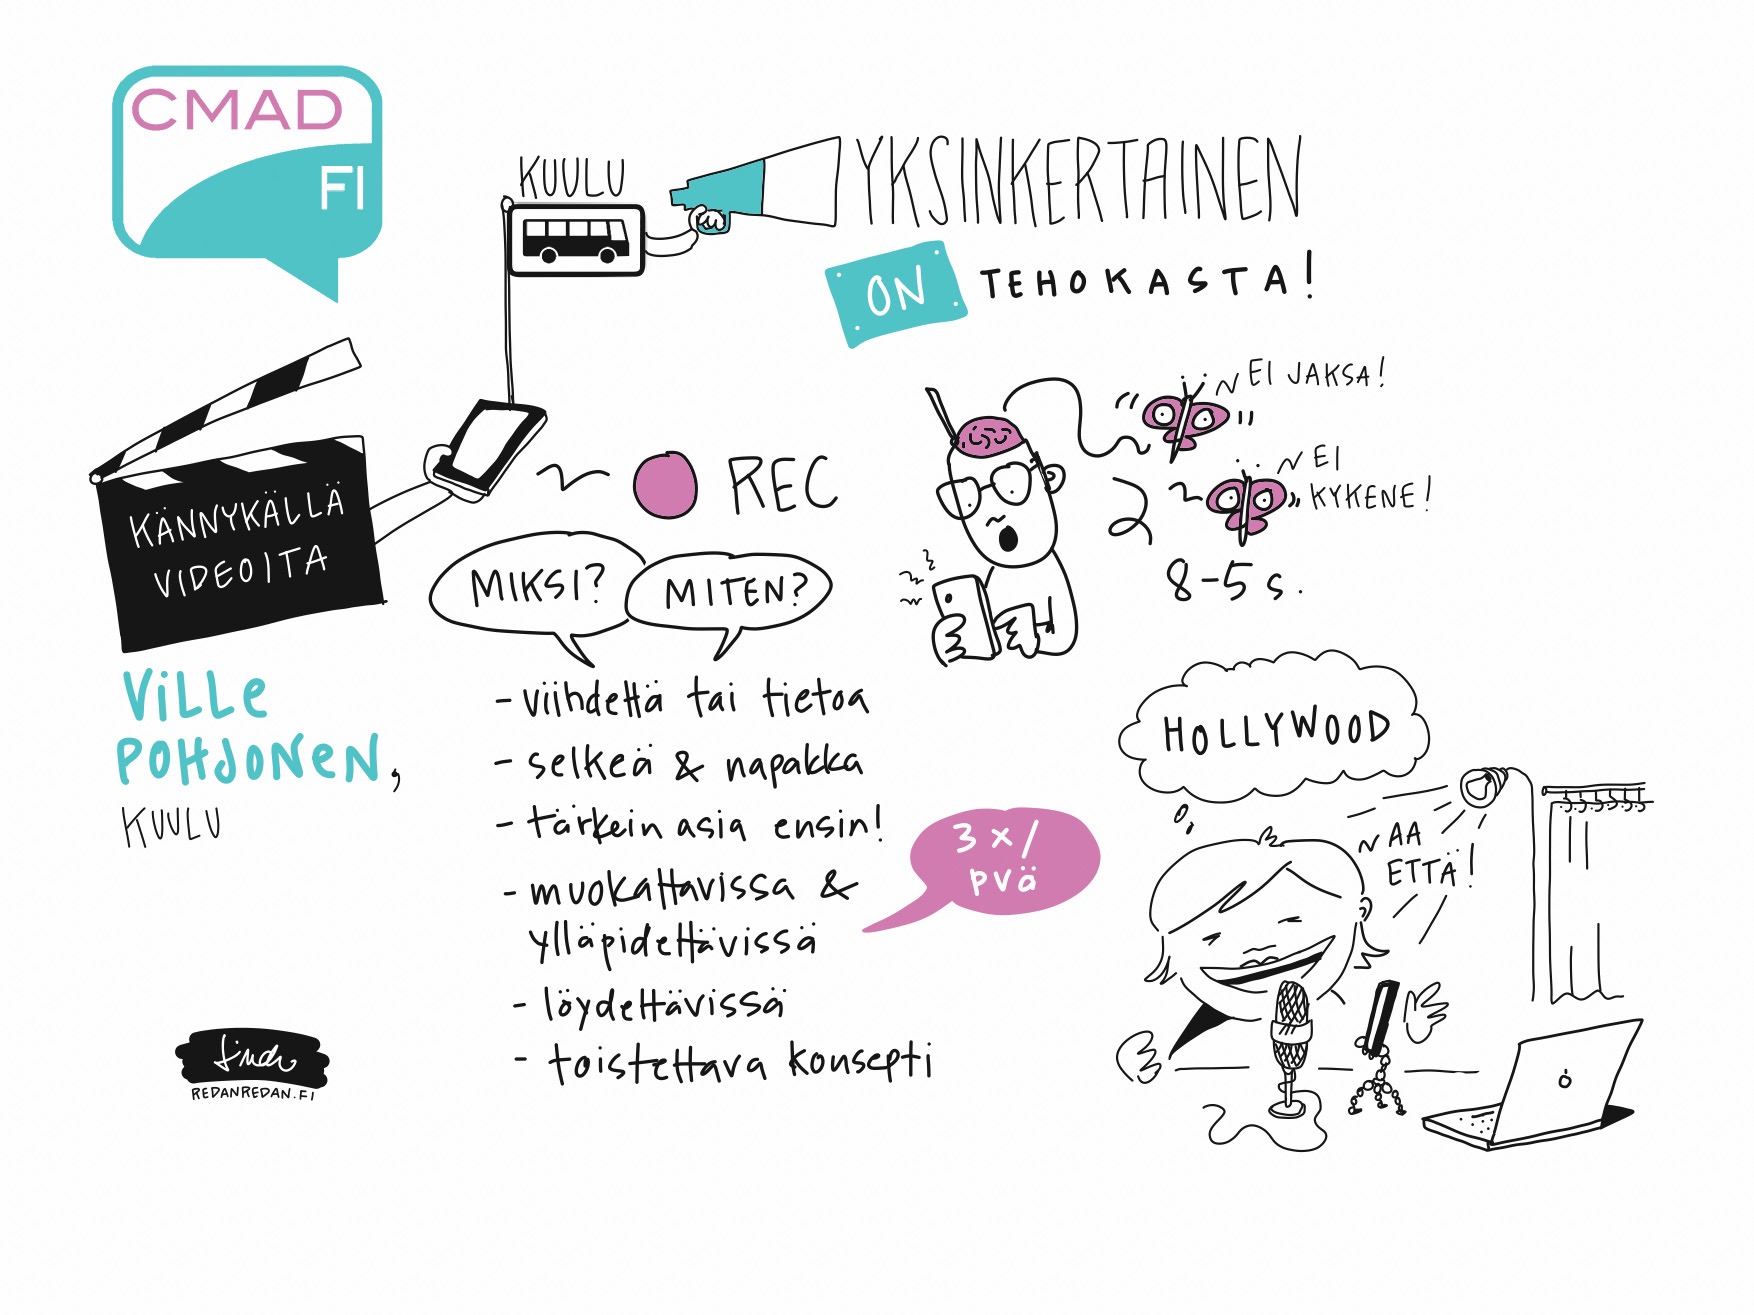 CMAD
FI
KUULU
YKSINKERTAINEN
ON TEHOKASTA!
KÄNNYKÄLLÄ
VIDEOITA
REC
MIKSI? MITEN?
EI JAKSA!
EI
KYKENE!
8-5 s.
VILLE
POHJONEN,
KUULU
- viihdettä tai tietoa
- selkeä & napakka
- tärkein asia ensin!
- muokattavissa &
ylläpidettävissä
- löydettävissä
- toistettava konsepti
3 x/
pvä
HOLLYWOOD
AA
ETTÄ!
REDANREDAN.FI